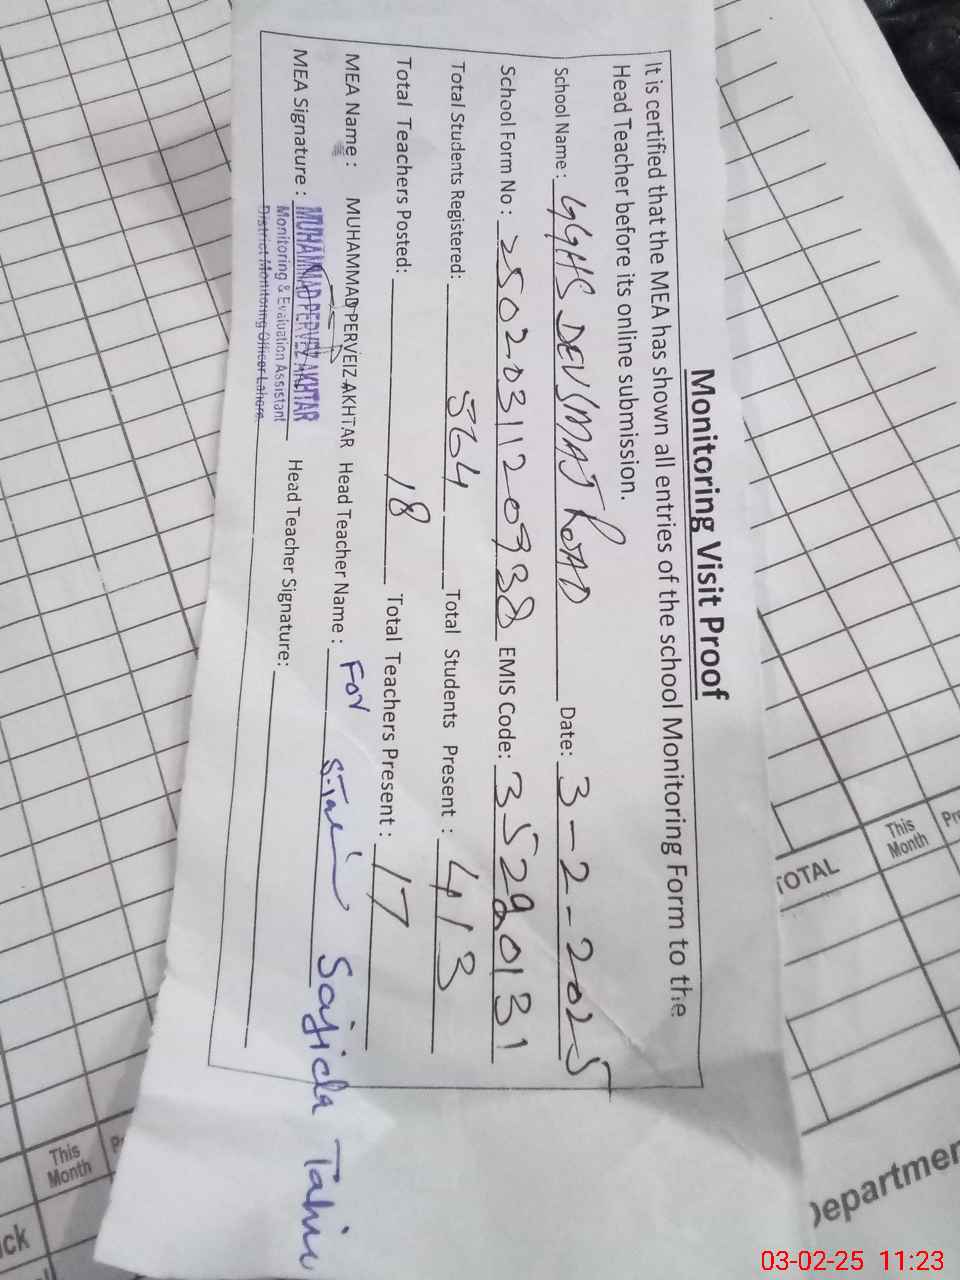 Monitoring Visit Proof
It is certified that the MEA has shown all entries of the school Monitoring Form to the
Head Teacher before its online submission.
School Name: GGHS DEV SMAJ ROAD Date: 3-2-2025
School Form No: 2502031120938 EMIS Code: 35290131
Total Students Registered: 564 Total Students Present: 413
Total Teachers Posted: 18 Total Teachers Present: 17
MEA Name: MUHAMMAD PERVEIZ AKHTAR Head Teacher Name: For Sajida Tahir
MEA Signature: MUHAMMAD PERVEIZ AKHTAR Head Teacher Signature:
Monitoring & Evaluation Assistant
District Monitoring Officer Lahore
TOTAL
This
Month
Departmen
This
Month
03-02-25 11:23